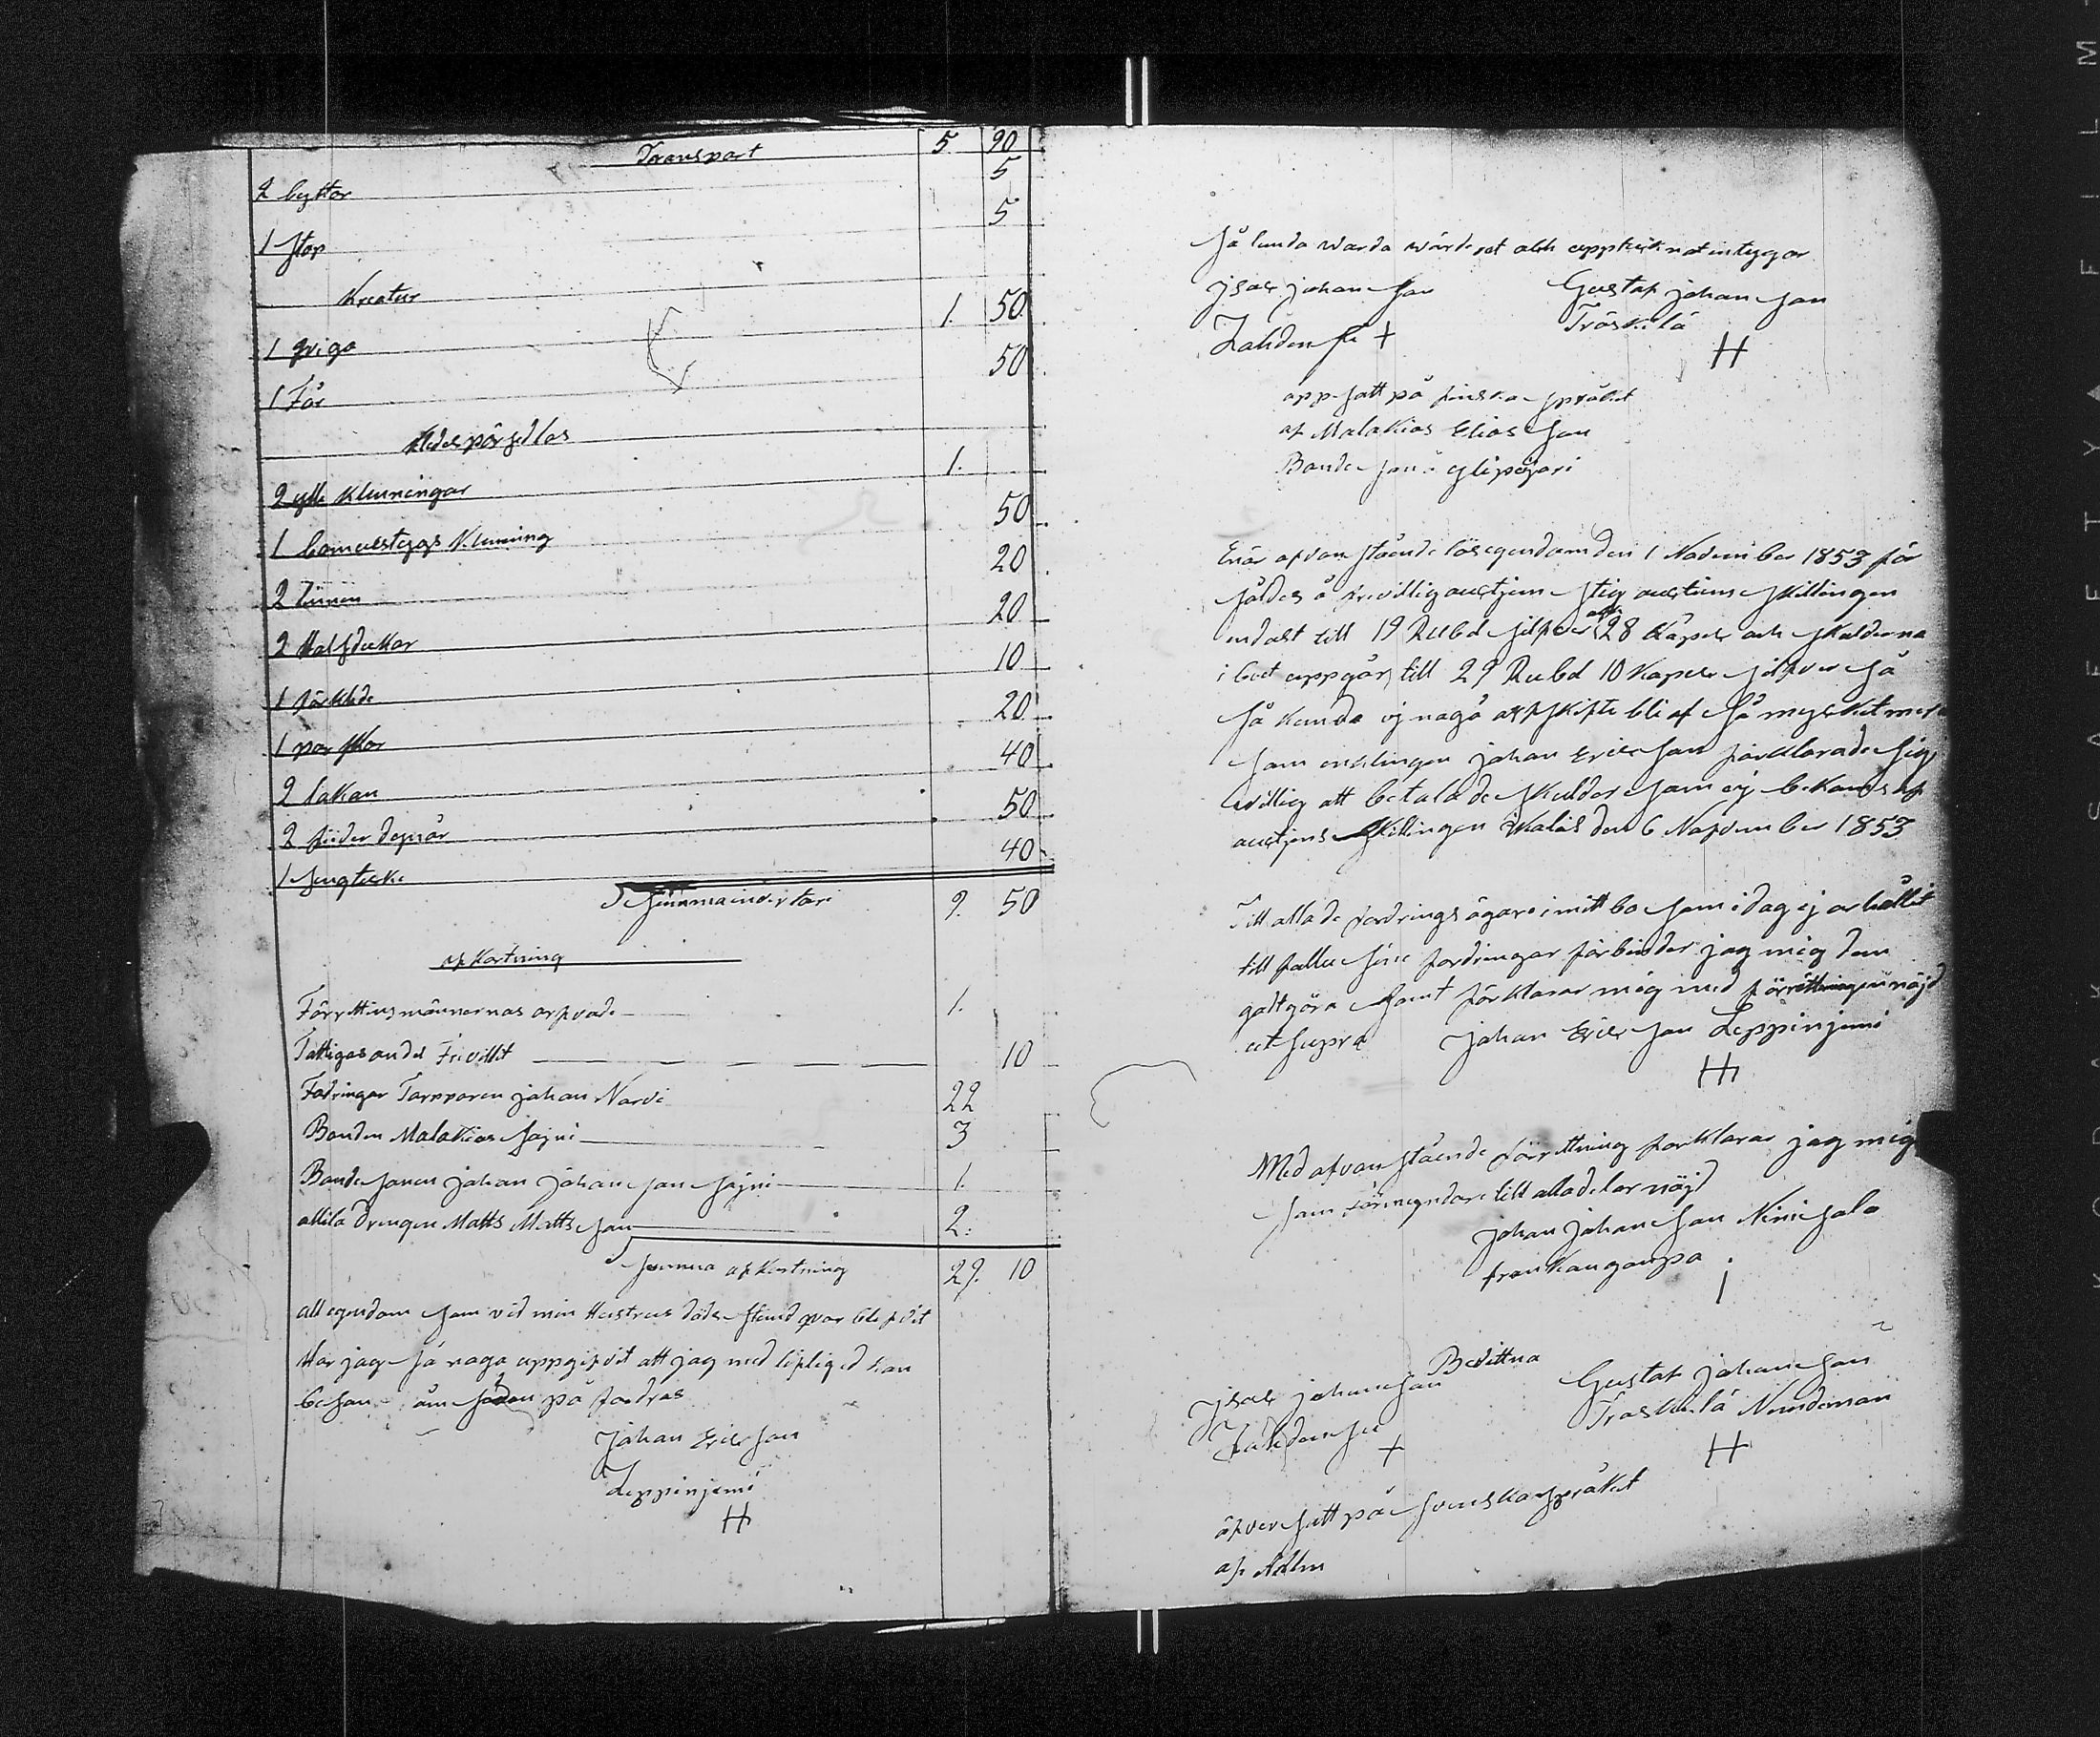 Transport 5. 90
2 byttor 5
1 stop 5
Kreatur
1 qviga 1. 50
1 Får 50
Klädespörsedlar
2 ylle klenningar 1.
1 bomulstygs klenning 50
2 linnen 20
2 Halsdukar 20
1 förkläde 10
1 par skor 20
2 lakan 40
2 50
1 40
Summa inventari 9. 50
afkortning
Förrettningsmännernas arfvode 1.
Fattigas andel Frivillit 10
Fodringar Torpparen johan Narvi 22
Bonden Malakias Sajni 3
Bondesonen johan johansson Sajni 1.
drengen Matts Mattsson 2.
Summa afkortning 29. 10
all egendom som vid min Hustrus dödsstund qvar blifvit
Har jag så noga uppgifvit att jag med liflig ed kan
besan om sådan på fordras
johan Ericsson
Leppinjemi
H
Så lunda warda wärderat och uppteknat intygar
jsak johansson Gustaf johansson
+ Träskilä
H
oppsatt på finska språket
af Malakias Eliasson
Bondeson
Enär ofvanstående lösegendom den 1 November 1853 för
såldes å frivillig auctjon steg auctions skillingen
endast till 19 Rubel silfver och 28 kapek och skulderna
i boet uppgår till 29 Rubel 10 kapek silfver så
så kunda ej någå arfskifte bli af så myckit mer
som enklingen johan Ericsson förklarade sig
villig att betala de skulder som ej bekoms af
auctjons skillingen den 6 November 1853
Till alla de fordringsägare i mitt bo som i dag ej erhållit
till fullu sine fordringar förbinder jag mig dem
gottgöra samt förklarar mig med förrettningen nöjd
ut supra johan Ericsson Leppinjemi
H
Med ofvanstående förrettning forklarar jag mig
som förmyndare till alla delar nöjd
johan johansson Nimisalo
från kangonpä
Bevittna
jsak johansson Gustaf johansson
+ H
öfversatt på svenska språket
af